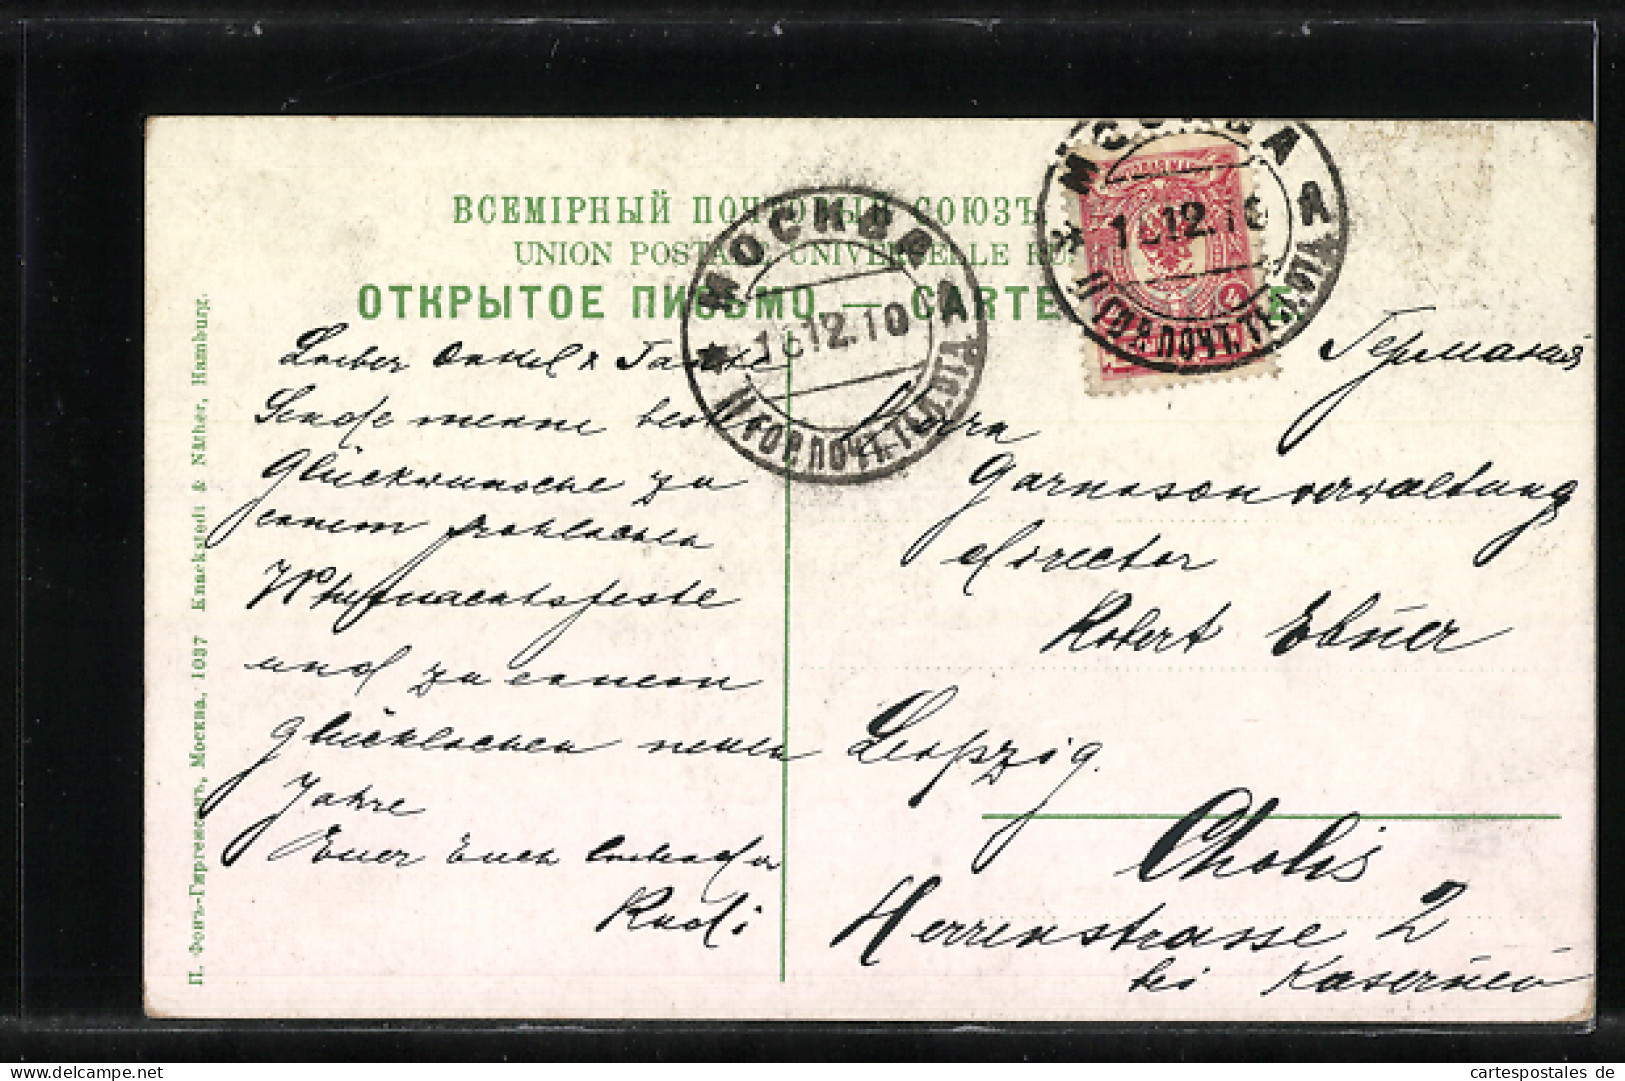 ВСЕМІРНЫЙ ПОЧТОВЫЙ СОЮЗЪ.
UNION POSTALE UNIVERSELLE RUSSIE
ОТКРЫТОЕ ПИСЬМО. — CARTE
МОСКВА
16.12.10
II ГОР. ПОЧТ. ТЕЛ. ОТД.
МОСКВА
16.12.10
II ГОР. ПОЧТ. ТЕЛ. ОТД.
4
Германия
Lieber Onkel & Tante
Sende meine besten
Glückwünsche zu
einem fröhlichen
Weihnachtsfeste
und zu einem
glücklichen neuen
Jahre
Euer Euch liebender
Rudi
Herrn
Garnisonverwaltung
director
Robert Ebner
Leipzig.
Gholis
Herrenstrasse 2
bei Kasernen
П. Фонъ-Гиргенсонъ, Москва. 1037 Knackstedt & Näther, Hamburg.
cartespostales de